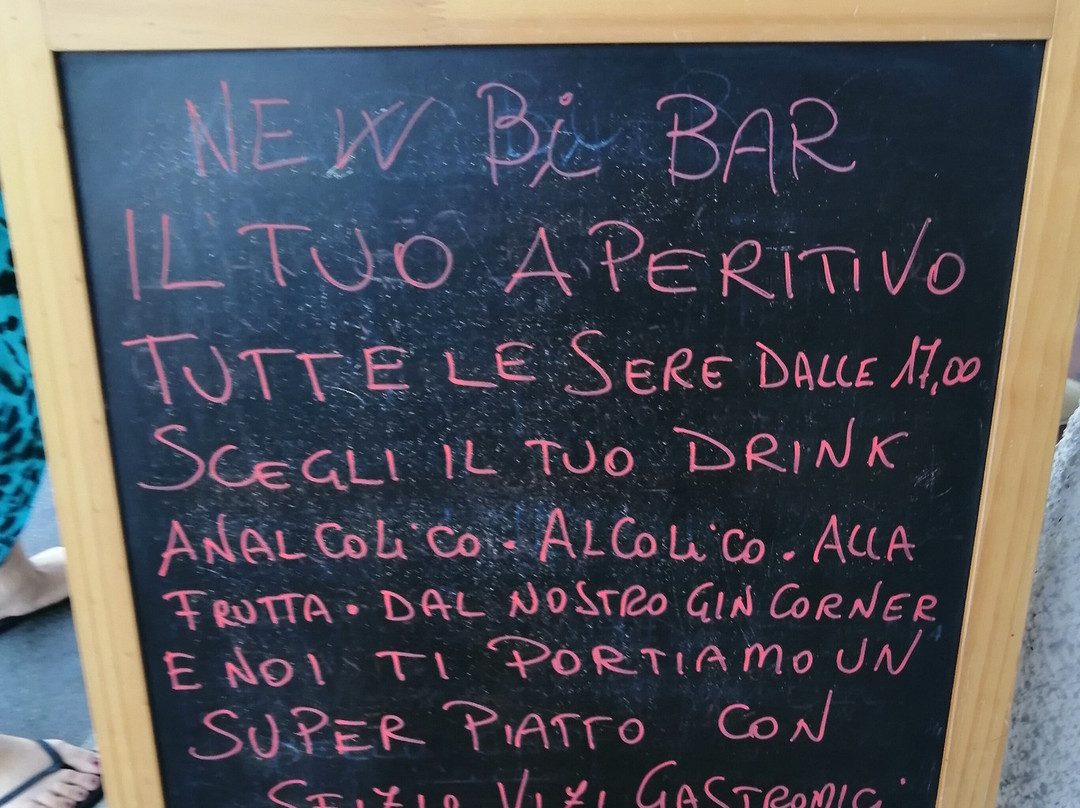 NEW Bi BAR
IL TUO APERITIVO
TUTTE LE SERE DALLE 17,00
SCEGLI IL TUO DRINK
ANALCOLICO. ALCOLICO. ALLA
FRUTTA. DAL NOSTRO GIN CORNER
E NOI TI PORTIAMO UN
SUPER PIATTO CON
VIZI GASTRONOMIC